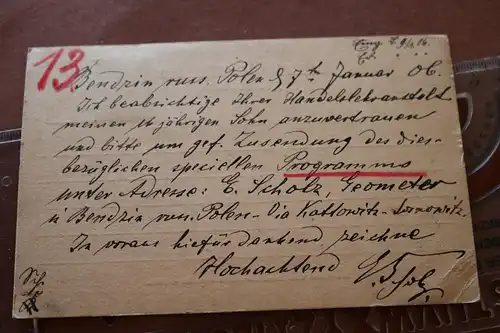 13
Eing. 9/1 06.
Bendzin russ. Polen d 7ten Januar 06.
Ich beabsichtige Ihrer Handelslehranstalt
meinen 16 jährigen Sohn anzuvertrauen
und bitte um gef. Zusendung des dies-
bezüglichen speciellen Programms
unter Adresse: E. Scholz, Geometer
in Bendzin russ. Polen - Via Kattowitz - Sosnowitz.
Im voraus hiefür dankend zeichne
Hochachtend E. Scholz